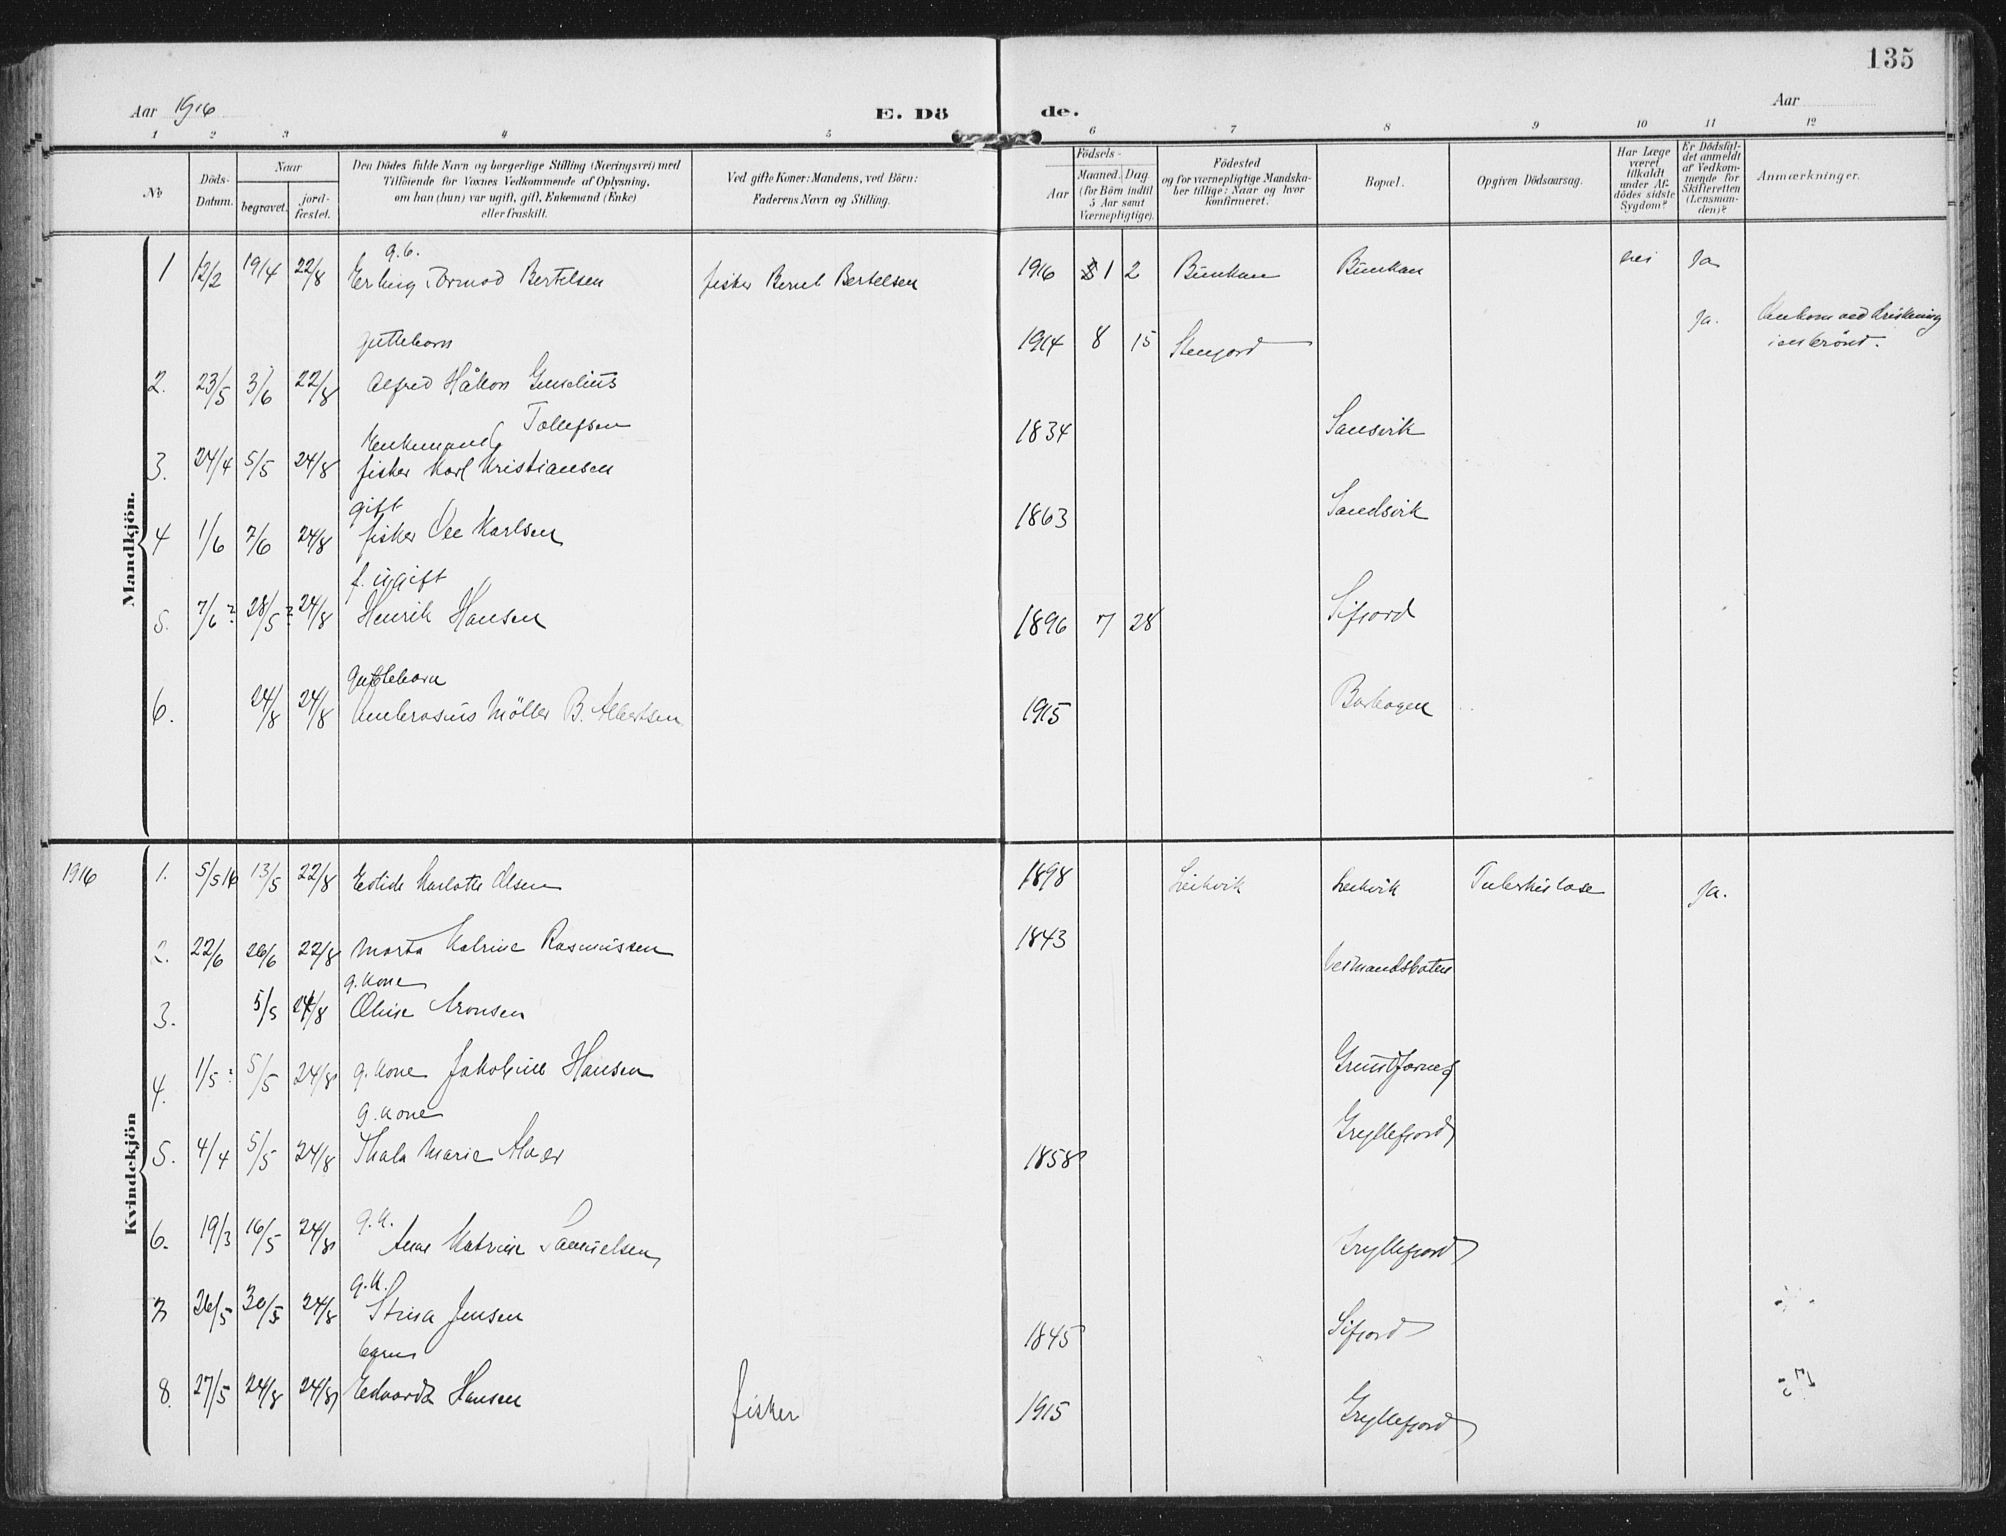 135
Aar 1916
E. Döde.
Aar
1 2 3 4 5 6 7 8 9 10 11 12
No
Döds-Datum.
Naar
begravet.
jord-fæstet.
Den Dödes fulde Navn og borgerlige Stilling (Næringsvei) med
Tilföiende for Voxnes Vedkommende af Oplysning,
om han (hun) var ugift, gift, Enkemand (Enke)
eller fraskilt.
Ved gifte Koner: Mandens, ved Börn:
Faderens Navn og Stilling.
Födsels-
Aar
Maaned. Dag
(for Börn indtil
5 Aar samt
Værnepligtige).
Födested
og for værnepligtige Mandska-
ber tillige: Naar og hvor
konfirmeret.
Bopæl.
Opgiven Dödsaarsag.
Har Læge
været
tilkaldt
under Af-
dödes sidste
Sygdom?
Er Dödsfal-
det anmeldt
af Vedkom-
mende for
Skifteretten
(Lensman-
den)?
Anmærkninger.
Mandkjön.
g.b.
1 12/2 19/4 22/8 Erling Tormod Bertelsen fisker Bernt Bertelsen 1916 1 2 Bunkan Bunkan nei Ja
guttebarn
2. 23/5 3/6 22/8 Alfred Håkon Tollefsen 1914 8 15 Stenfjord Ja.
Enkemand
3. 24/4 5/5 24/8 fisker Karl Kristiansen 1834 Sansvik
gift
4 1/6 7/6 24/8 fisker Karlsen 1863 Sandsvik
f. ugift
5. 7/6? 28/5? 24/8 Henrik Hansen 1896 7 28 Sifjord
guttebarn
6. 24/8 24/8 Ambrosius Möller B. Albertsen 1915
Kvindekjön
1916 1. 5/5 16 13/5 22/8 Karlotte Olsen 1898 Leikvik Leikvik Tuberkulose Ja.
2. 22/6 26/6 22/8 Marta Katrine Rasmussen 1843
g. kone
3. 5/5 24/8 Oluise Aronsen
4. 1/5? 5/5 24/8 g. kone Jakobine Hansen
g. kone
5. 4/4 5/5 24/8 Thala Marie 1858 Gryllefjord
g.k.
6. 19/3 16/5 24/8 Anne Katrine Samuelsen Gryllefjord
g.k.
7 26/5 30/5 24/8 Strina Jensen 1845 Sifjord
barn
8. 27/5 24/8 24/8 Edvarda Hansen fisker 1915 Gryllefjord